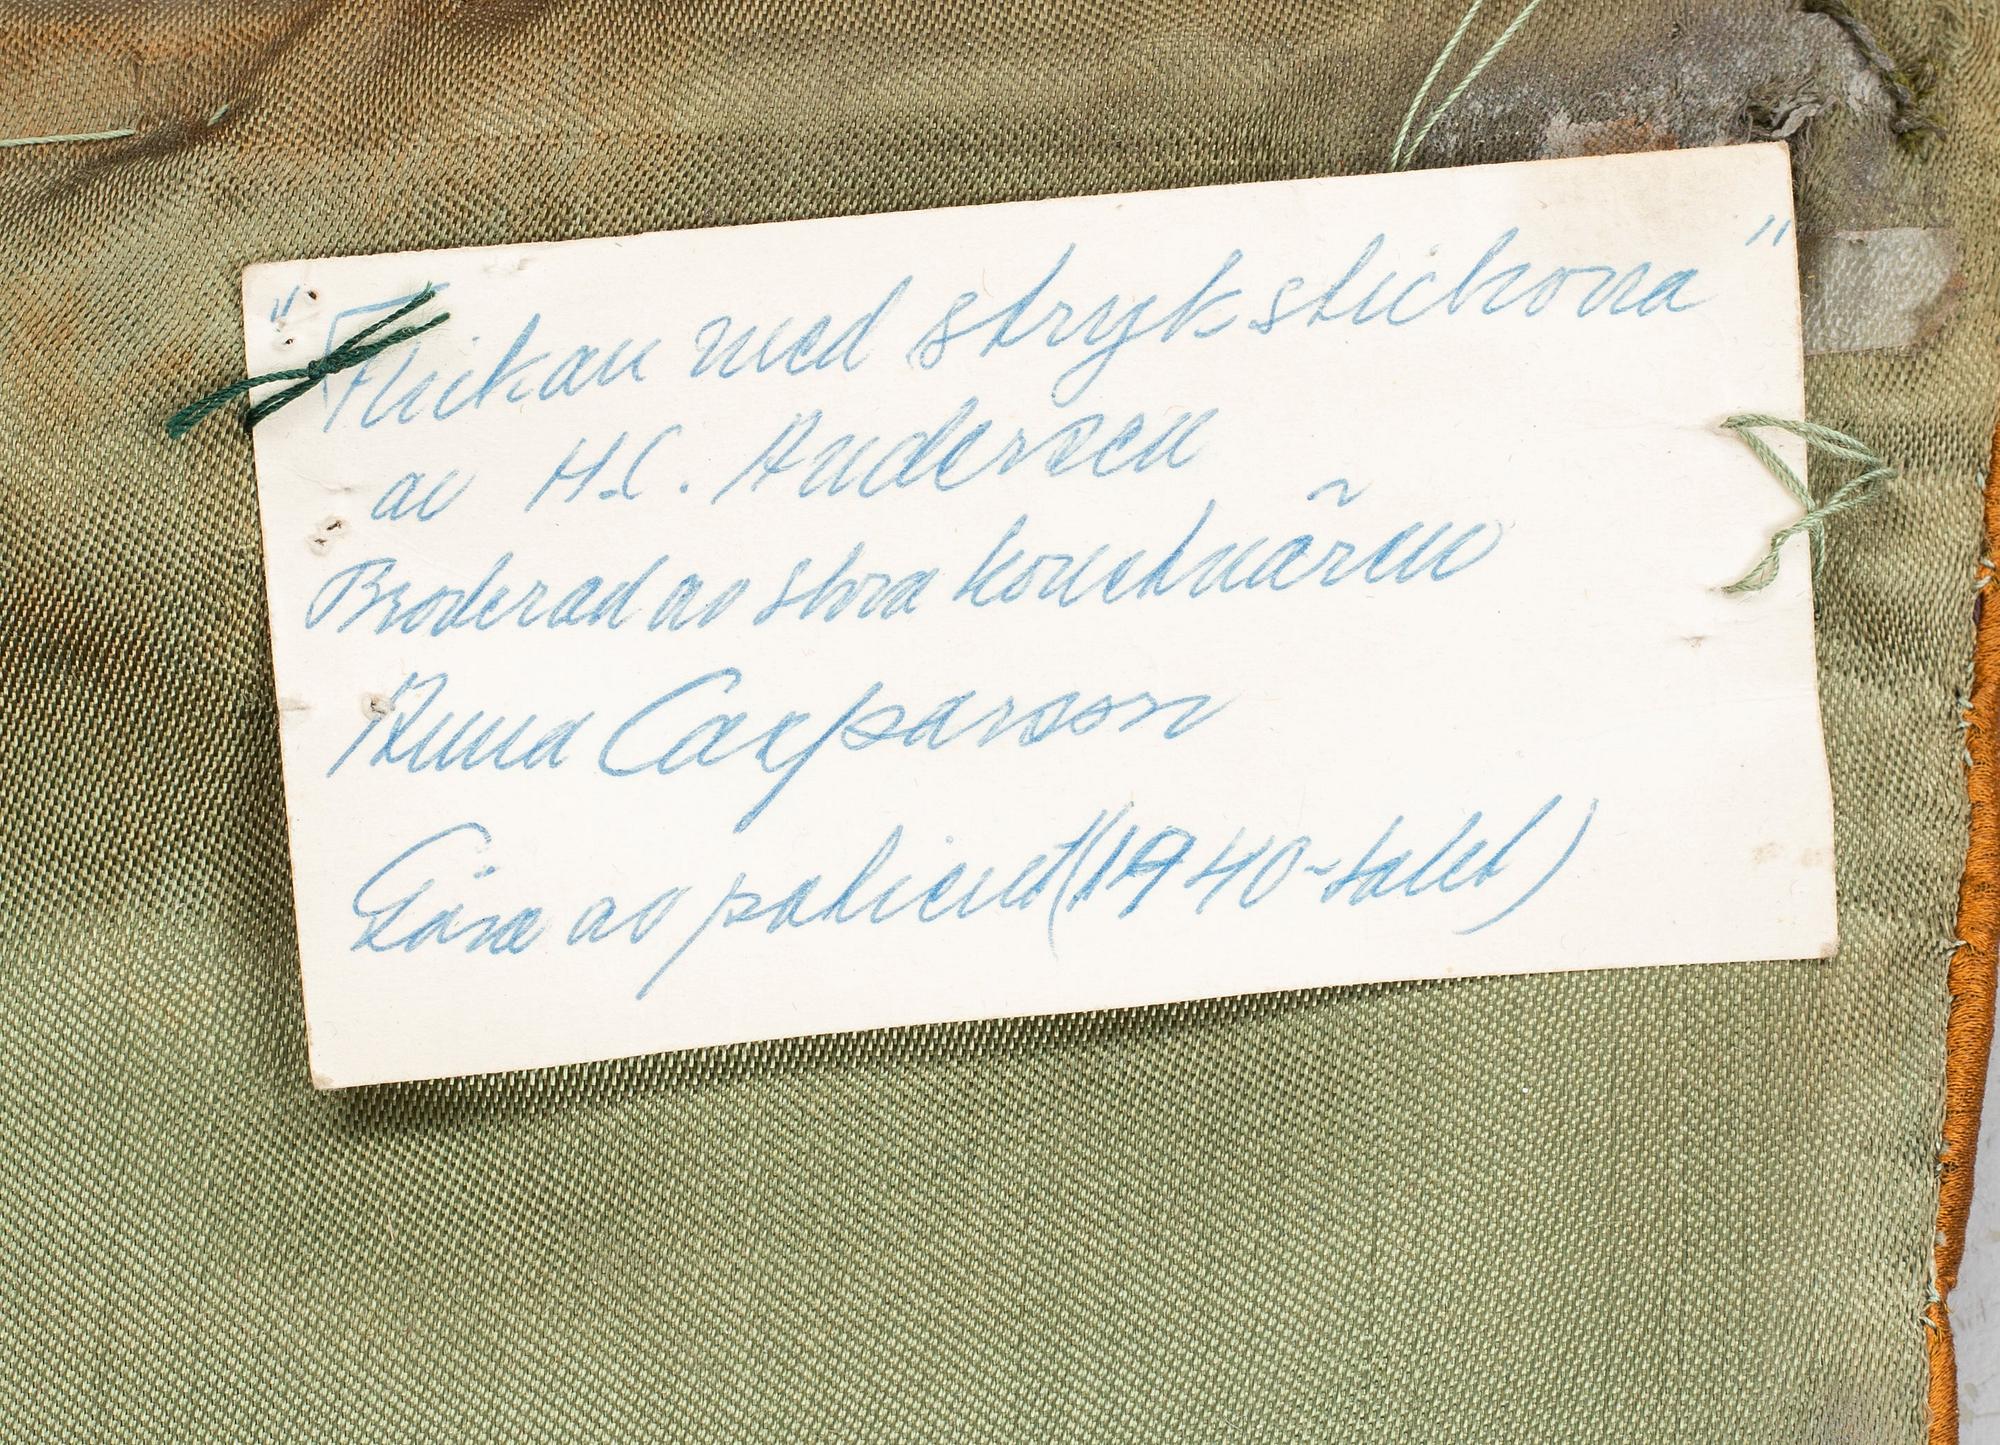 "Flickan med strykstickorna"
av H.C. Andersen
Broderad av stora konstnären
Anna Casparsson
Gåva av patient (1940-talet)